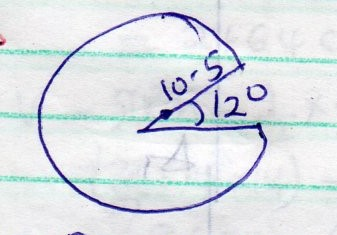 10.5
120